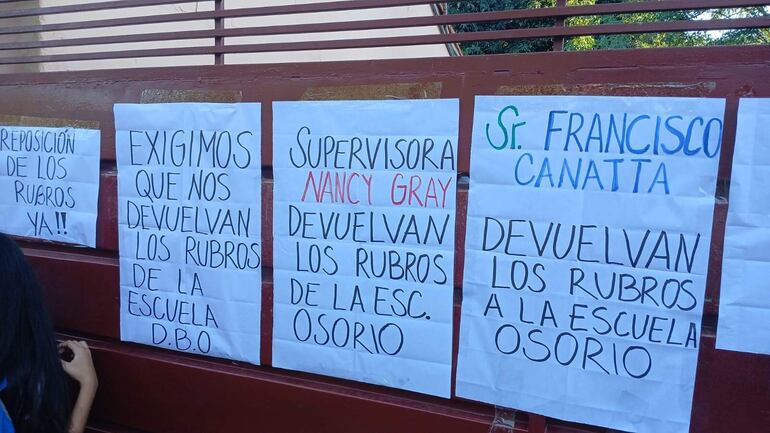 REPOSICIÓN
DE LOS
RUBROS
YA!!
EXIGIMOS
QUE NOS
DEVUELVAN
LOS RUBROS
DE LA
ESCUELA
D.B.O
SUPERVISORA
NANCY GRAY
DEVUELVAN
LOS RUBROS
DE LA ESC.
OSORIO
Sr. FRANCISCO
CANATTA
DEVUELVAN
LOS RUBROS
A LA ESCUELA
OSORIO